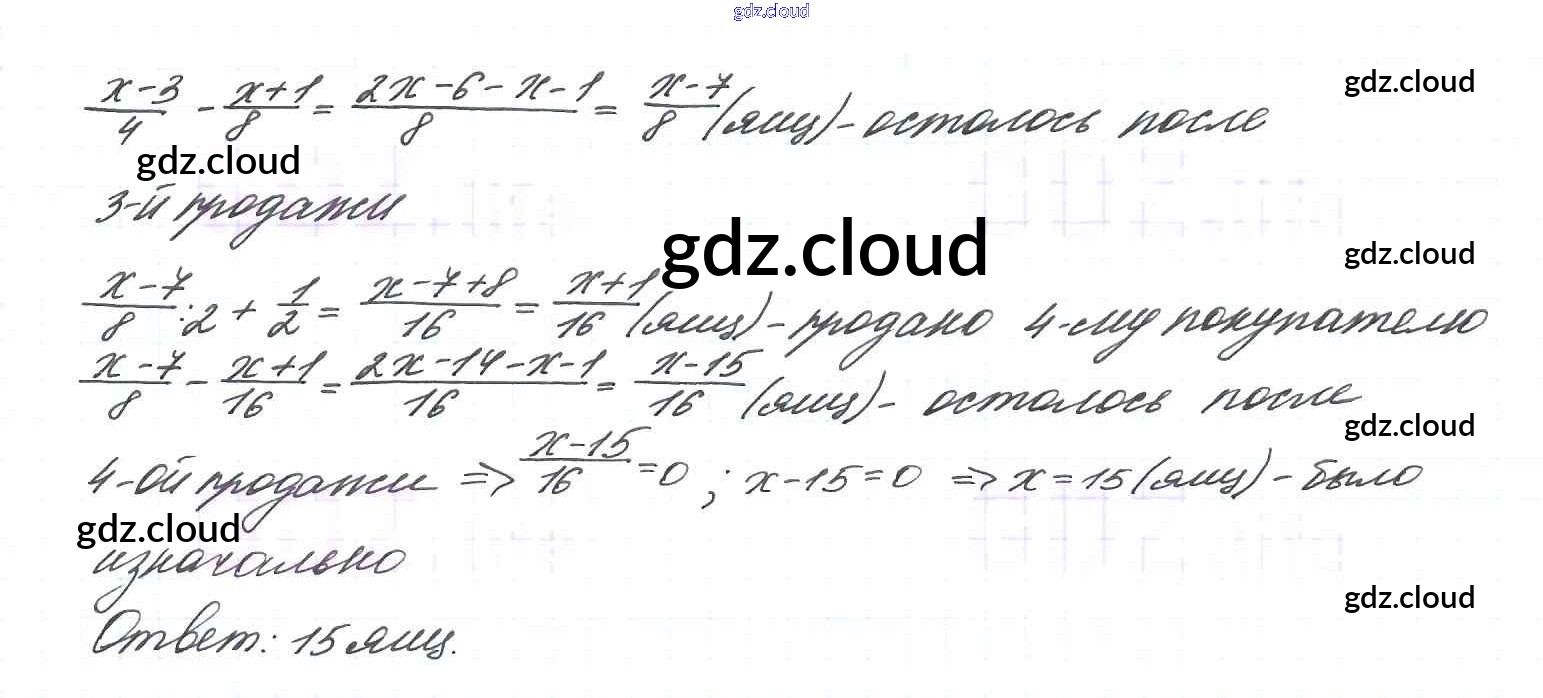 gdz.cloud
(x-3)/4 - (x+1)/8 = (2x-6-x-1)/8 = (x-7)/8 (ящ) - осталось после
gdz.cloud
gdz.cloud
3-й продажи
gdz.cloud
gdz.cloud
(x-7)/8 : 2 + 1/2 = (x-7+8)/16 = (x+1)/16 (ящ) - продано 4-му покупателю
(x-7)/8 - (x+1)/16 = (2x-14-x-1)/16 = (x-15)/16 (ящ) - осталось после
gdz.cloud
4-ой продажи => (x-15)/16 = 0 ; x-15=0 => x=15 (ящ) - было
gdz.cloud
изначально
gdz.cloud
Ответ: 15 ящ.